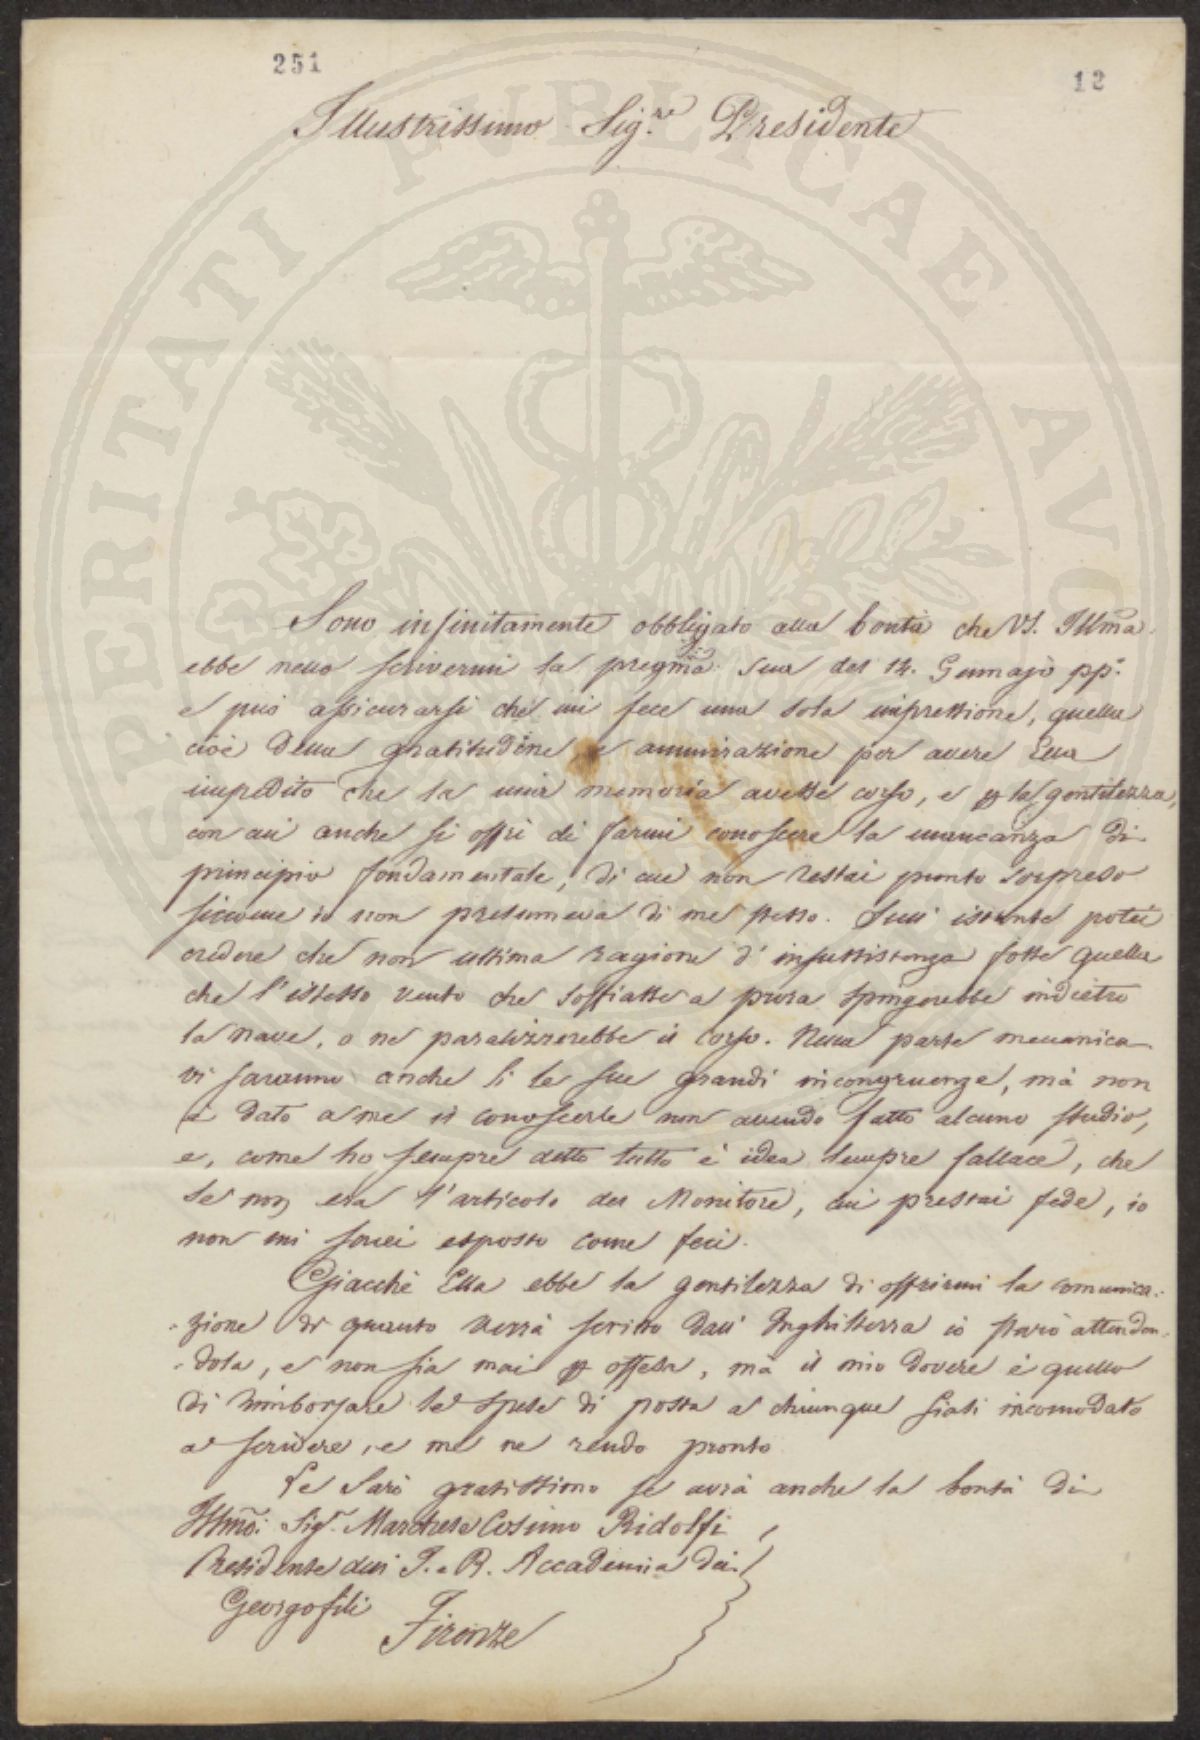 251
12
Illustrissimo Sig.re Presidente
Sono infinitamente obbligato alla bontà che VS. Illma
ebbe nello scrivermi la pregma sua del 14. Gennajo pp.º
e può assicurarsi che mi fece una sola impressione, quella
cioè della gratitudine e ammirazione per avere Ella
impedito che la mia memoria avesse corso, e p la gentilezza,
con cui anche si offrì di farmi conoscere la mancanza di
principio fondamentale, di cui non restai punto sorpreso
siccome io non presumeva di me stesso. Sull' istante potei
credere che non ultima ragione d' insussistenza fosse quella
che l'istesso vento che soffiasse a prora spingerebbe indietro
la nave, o ne paralizzerebbe il corso. Nella parte meccanica
vi saranno anche lì le sue grandi incongruenze, mà non
è dato a me il conoscerle non avendo fatto alcuno studio,
e, come ho sempre detto tutto è idea sempre fallace, che
se non era l'articolo del Monitore, cui prestai fede, io
non mi sarei esposto come feci.
Giacchè Ella ebbe la gentilezza di offrirmi la comunica-
zione di quanto verrà scritto dall' Inghilterra io starò attenden-
dola, e non sia mai p offesa, mà il mio dovere è quello
di rimborsare le spese di posta a chiunque siasi incomodato
a scrivere, e me ne rendo pronto
Le Sarò gratissimo se avrà anche la bontà di
Illmo: Sigr. Marchese Cosimo Ridolfi
Presidente dell' I. e R. Accademia dei
Georgofili
Firenze
SPERITATI PUBLICAE AUG